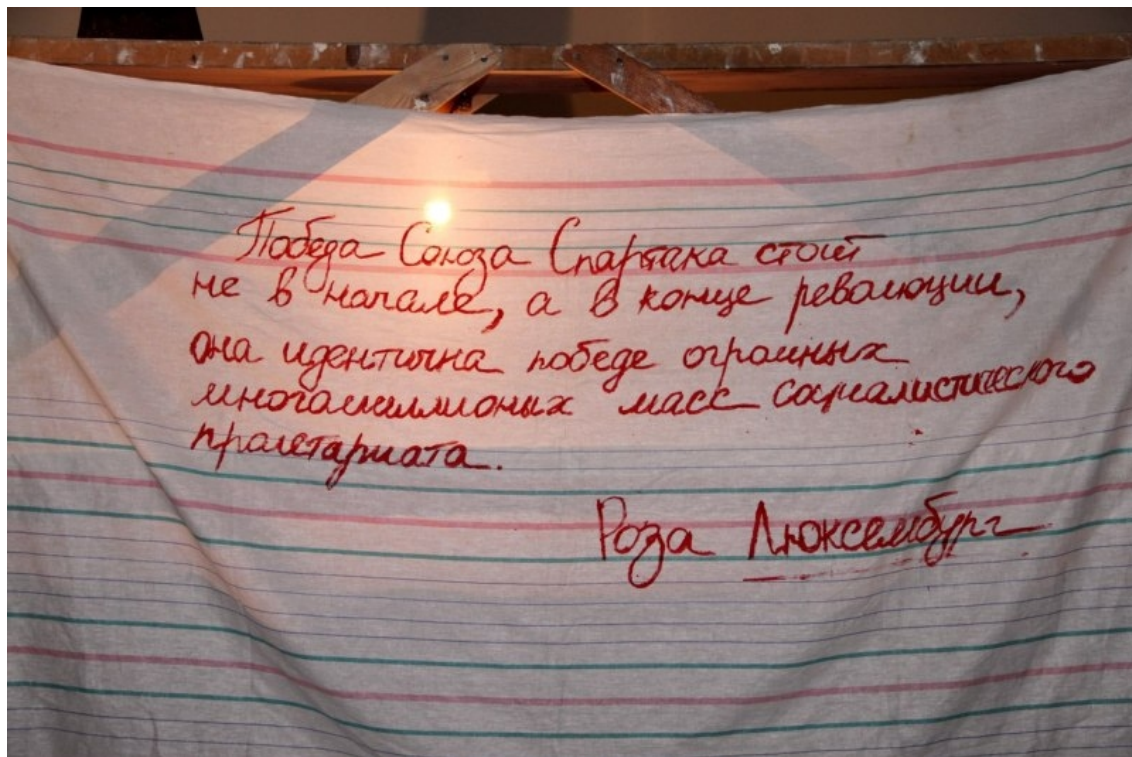 Победа Союза Спартака стоит
не в начале, а в конце революции,
она идентична победе огромных
многомиллионых масс социалистического
пролетариата.
Роза Люксембург